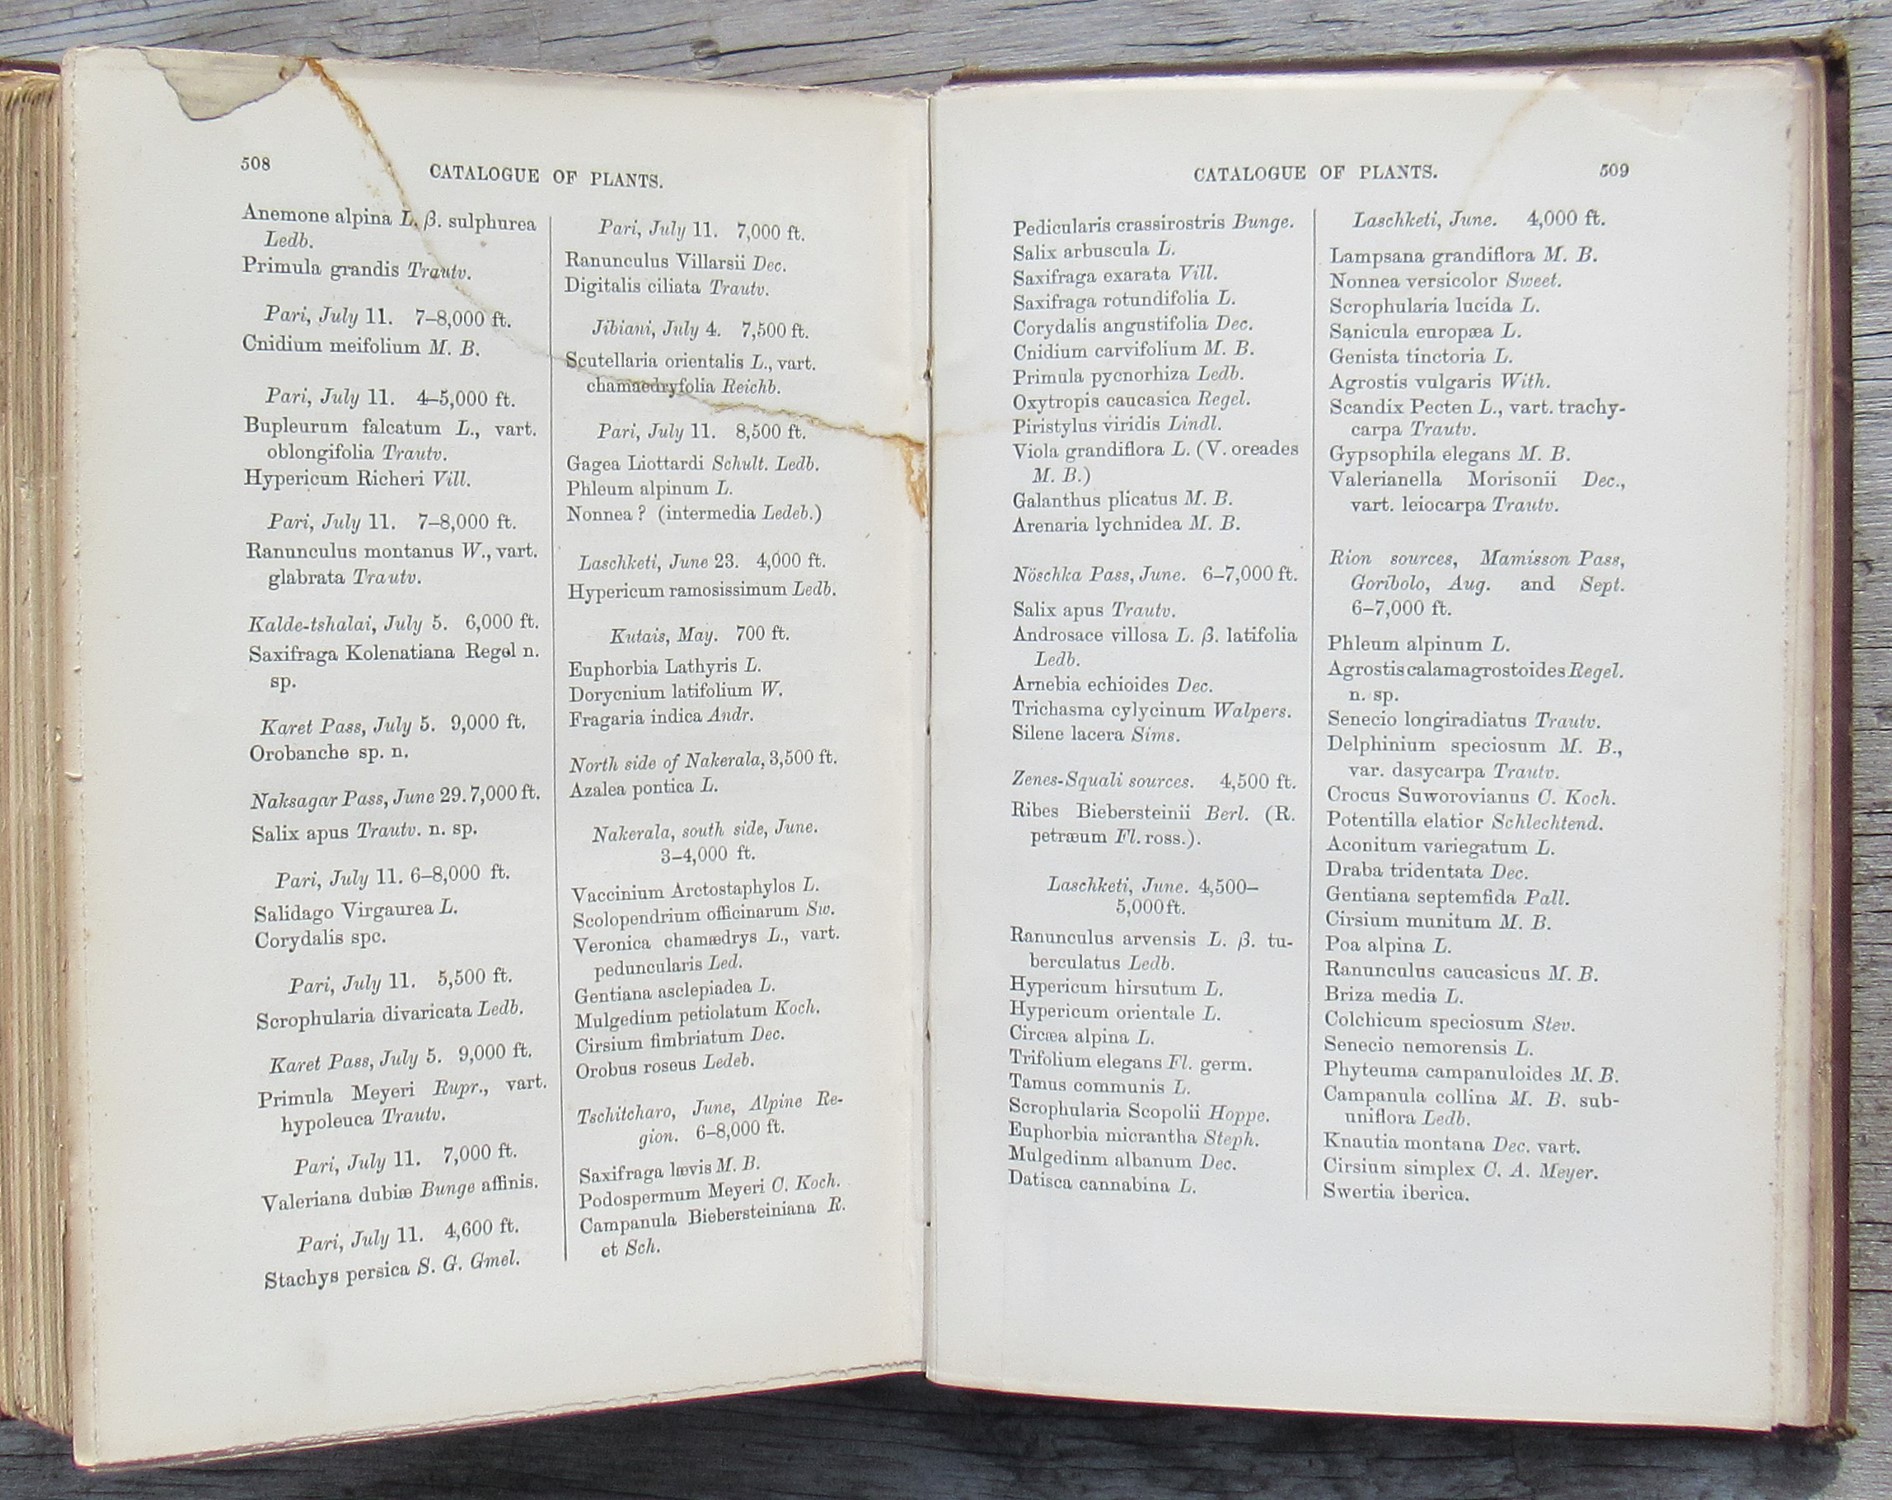 508
CATALOGUE OF PLANTS.
Anemone alpina L. β. sulphurea
Ledb.
Primula grandis Trautv.
Pari, July 11. 7–8,000 ft.
Cnidium meifolium M. B.
Pari, July 11. 4–5,000 ft.
Bupleurum falcatum L., vart.
oblongifolia Trautv.
Hypericum Richeri Vill.
Pari, July 11. 7–8,000 ft.
Ranunculus montanus W., vart.
glabrata Trautv.
Kalde-tshalai, July 5. 6,000 ft.
Saxifraga Kolenatiana Regel n.
sp.
Karet Pass, July 5. 9,000 ft.
Orobanche sp. n.
Naksagar Pass, June 29. 7,000 ft.
Salix apus Trautv. n. sp.
Pari, July 11. 6–8,000 ft.
Salidago Virgaurea L.
Corydalis spc.
Pari, July 11. 5,500 ft.
Scrophularia divaricata Ledb.
Karet Pass, July 5. 9,000 ft.
Primula Meyeri Rupr., vart.
hypoleuca Trautv.
Pari, July 11. 7,000 ft.
Valeriana dubiæ Bunge affinis.
Pari, July 11. 4,600 ft.
Stachys persica S. G. Gmel.
Pari, July 11. 7,000 ft.
Ranunculus Villarsii Dec.
Digitalis ciliata Trautv.
Jibiani, July 4. 7,500 ft.
Scutellaria orientalis L., vart.
chamaedryfolia Reichb.
Pari, July 11. 8,500 ft.
Gagea Liottardi Schult. Ledb.
Phleum alpinum L.
Nonnea ? (intermedia Ledeb.)
Laschketi, June 23. 4,000 ft.
Hypericum ramosissimum Ledb.
Kutais, May. 700 ft.
Euphorbia Lathyris L.
Dorycnium latifolium W.
Fragaria indica Andr.
North side of Nakerala, 3,500 ft.
Azalea pontica L.
Nakerala, south side, June.
3–4,000 ft.
Vaccinium Arctostaphylos L.
Scolopendrium officinarum Sw.
Veronica chamædrys L., vart.
peduncularis Led.
Gentiana asclepiadea L.
Mulgedium petiolatum Koch.
Cirsium fimbriatum Dec.
Orobus roseus Ledeb.
Tschitcharo, June, Alpine Re-
gion. 6–8,000 ft.
Saxifraga lævis M. B.
Podospermum Meyeri C. Koch.
Campanula Biebersteiniana R.
et Sch.
CATALOGUE OF PLANTS.
509
Pedicularis crassirostris Bunge.
Salix arbuscula L.
Saxifraga exarata Vill.
Saxifraga rotundifolia L.
Corydalis angustifolia Dec.
Cnidium carvifolium M. B.
Primula pycnorhiza Ledb.
Oxytropis caucasica Regel.
Piristylus viridis Lindl.
Viola grandiflora L. (V. oreades
M. B.)
Galanthus plicatus M. B.
Arenaria lychnidea M. B.
Nöschka Pass, June. 6–7,000 ft.
Salix apus Trautv.
Androsace villosa L. β. latifolia
Ledb.
Arnebia echioides Dec.
Trichasma cylycinum Walpers.
Silene lacera Sims.
Zenes-Squali sources. 4,500 ft.
Ribes Biebersteinii Berl. (R.
petræum Fl. ross.).
Laschketi, June. 4,500–
5,000 ft.
Ranunculus arvensis L. β. tu-
berculatus Ledb.
Hypericum hirsutum L.
Hypericum orientale L.
Circæa alpina L.
Trifolium elegans Fl. germ.
Tamus communis L.
Scrophularia Scopolii Hoppe.
Euphorbia micrantha Steph.
Mulgedinm albanum Dec.
Datisca cannabina L.
Laschketi, June. 4,000 ft.
Lampsana grandiflora M. B.
Nonnea versicolor Sweet.
Scrophularia lucida L.
Sanicula europæa L.
Genista tinctoria L.
Agrostis vulgaris With.
Scandix Pecten L., vart. trachy-
carpa Trautv.
Gypsophila elegans M. B.
Valerianella Morisonii Dec.,
vart. leiocarpa Trautv.
Rion sources, Mamisson Pass,
Goribolo, Aug. and Sept.
6–7,000 ft.
Phleum alpinum L.
Agrostis calamagrostoides Regel.
n. sp.
Senecio longiradiatus Trautv.
Delphinium speciosum M. B.,
var. dasycarpa Trautv.
Crocus Suworovianus C. Koch.
Potentilla elatior Schlechtend.
Aconitum variegatum L.
Draba tridentata Dec.
Gentiana septemfida Pall.
Cirsium munitum M. B.
Poa alpina L.
Ranunculus caucasicus M. B.
Briza media L.
Colchicum speciosum Stev.
Senecio nemorensis L.
Phyteuma campanuloides M. B.
Campanula collina M. B. sub-
uniflora Ledb.
Knautia montana Dec. vart.
Cirsium simplex C. A. Meyer.
Swertia iberica.